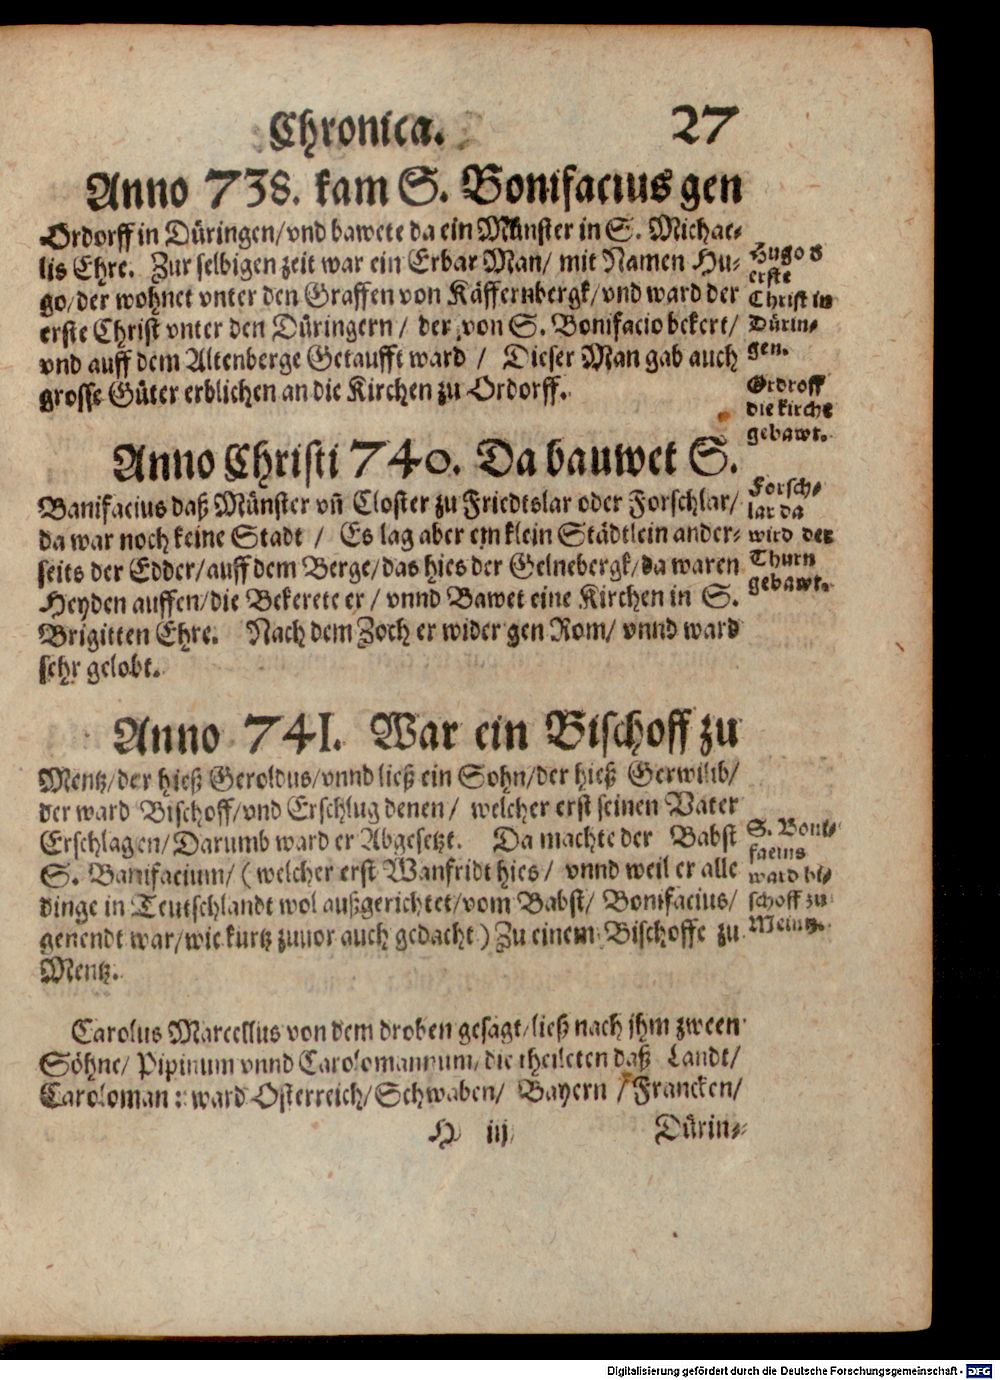 Chronica. 27
Anno 738. kam S. Bonifacius gen
Ordorff in Düringen/vnd bawete da ein Münster in S. Michae-
lis Ehre. Zur selbigen zeit war ein Erbar Man/ mit Namen Hu-
go/der wohnet vnter den Graffen von Käffernbergk/vnd ward der
erste Christ vnter den Düringern/ der von S. Bonifacio bekert/
vnd auff dem Altenberge Getaufft ward / Dieser Man gab auch
grosse Güter erblichen an die Kirchen zu Ordorff.
Hugo d
erste
Christ in
Dürin-
gen.
Ordroff
die kirche
gebawt.
Anno Christi 740. Da bauwet S.
Banifacius daß Münster vn̄ Closter zu Friedtslar oder Forschlar/
da war noch keine Stadt / Es lag aber ein klein Städtlein ander-
seits der Edder/auff dem Berge/das hies der Gelnebergk/da waren
Heyden auffen/die Bekerete er/ vnnd Bawet eine Kirchen in S.
Brigitten Ehre. Nach dem Zoch er wider gen Rom/ vnnd ward
sehr gelobt.
Forsch-
lar da
wird der
Thurn
gebawt.
Anno 741. War ein Bischoff zu
Mentz/der hieß Geroldus/vnnd ließ ein Sohn/der hieß Gerwilib/
der ward Bischoff/vnd Erschlug denen/ welcher erst seinen Vater
Erschlagen/Darumb ward er Abgesetzt. Da machte der Babst
S. Banifacium/(welcher erst Wanfridt hies/ vnnd weil er alle
dinge in Teutschlandt wol außgerichtet/vom Babst/ Bonifacius/
genendt war/wie kurtz zuuor auch gedacht) Zu einem Bischoffe zu
Mentz.
S. Boni-
facius
ward bi-
schoff zu
Meintz.
Carolus Marcellus von dem droben gesagt/ließ nach jhm zween
Söhne/ Pipinum vnnd Carolomannum/die theileten daß Landt/
Caroloman: ward Osterreich/Schwaben/ Bayern /Francken/
H iij Dürin-
Digitalisierung gefördert durch die Deutsche Forschungsgemeinschaft - DFG